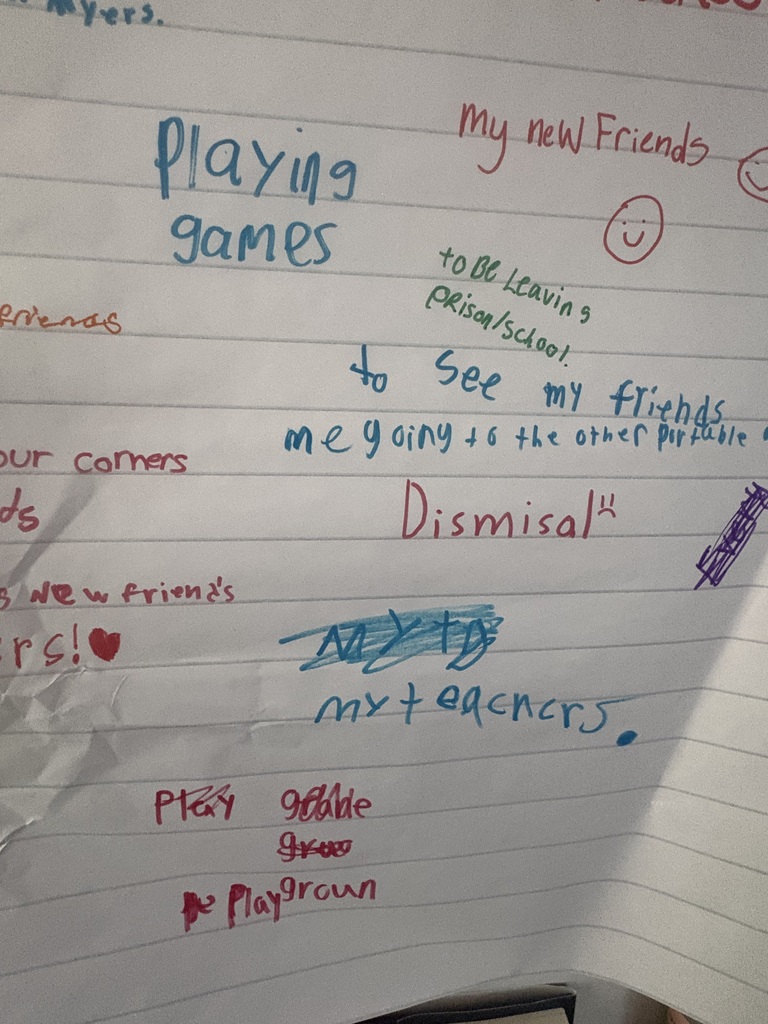 Myers.
my new Friends
Playing
games
to Be Leaving
prison/school.
friends
to see my friends
me going to the other portable
our corners
Dismisal
ds
s New friend's
rs!
my teachers.
Play
playgroun